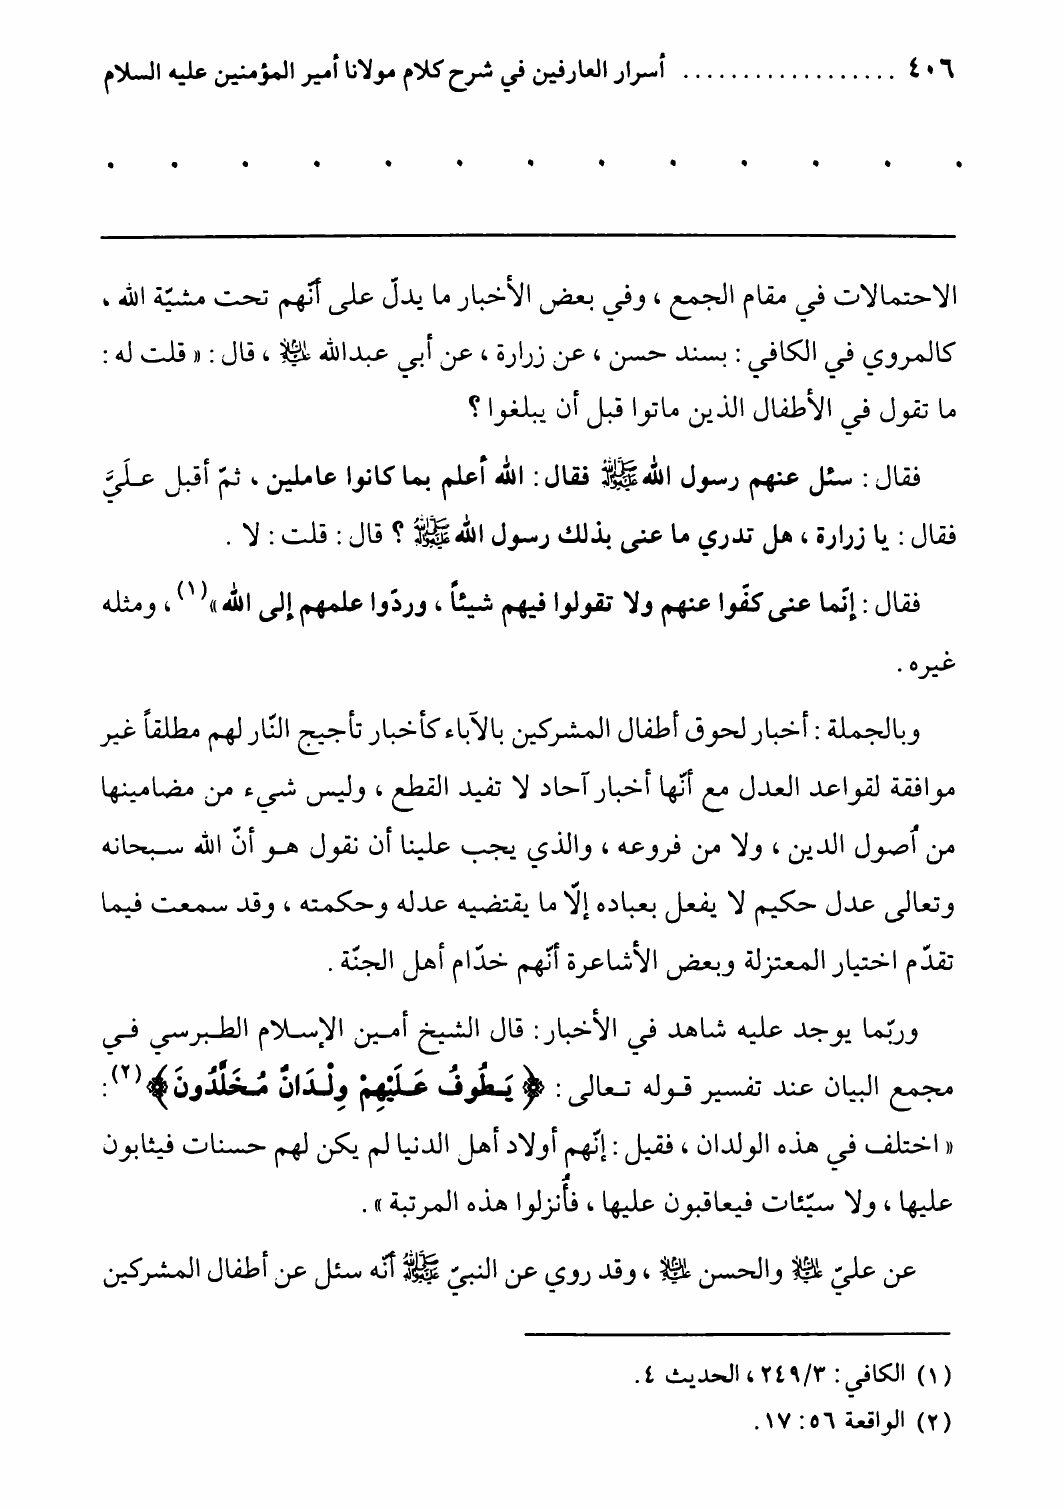 ٤٠٦ .................. أسرار العارفين في شرح كلام مولانا أمير المؤمنين عليه السلام
. . . . . . . . . . . . .
الاحتمالات في مقام الجمع ، وفي بعض الأخبار ما يدلّ على أنّهم تحت مشيّة الله ،
كالمروي في الكافي : بسند حسن ، عن زرارة ، عن أبي عبدالله عليه السلام ، قال : « قلت له :
ما تقول في الأطفال الذين ماتوا قبل أن يبلغوا ؟
فقال : سئل عنهم رسول الله ﷺ فقال : الله أعلم بما كانوا عاملين ، ثمّ أقبل عـلَيَّ
فقال : يا زرارة ، هل تدري ما عنى بذلك رسول الله ﷺ ؟ قال : قلت : لا .
فقال : إنّما عنى كفّوا عنهم ولا تقولوا فيهم شيئاً ، وردّوا علمهم إلى الله »(١) ، ومثله
غيره .
وبالجملة : أخبار لحوق أطفال المشركين بالآباء كأخبار تأجيج النّار لهم مطلقاً غير
موافقة لقواعد العدل مع أنّها أخبار آحاد لا تفيد القطع ، وليس شيء من مضامينها
من أُصول الدين ، ولا من فروعه ، والذي يجب علينا أن نقول هـو أنّ الله سـبحانه
وتعالى عدل حكيم لا يفعل بعباده إلّا ما يقتضيه عدله وحكمته ، وقد سمعت فيما
تقدّم اختيار المعتزلة وبعض الأشاعرة أنّهم خدّام أهل الجنّة .
وربّما يوجد عليه شاهد في الأخبار : قال الشيخ أمـين الإسـلام الطـبرسي فـي
مجمع البيان عند تفسير قـوله تـعالى : ﴿ يَـطُوفُ عَـلَيْهِمْ وِلْـدَانٌ مُـخَلَّدُونَ ﴾(٢) :
« اختلف في هذه الولدان ، فقيل : إنّهم أولاد أهل الدنيا لم يكن لهم حسنات فيثابون
عليها ، ولا سيّئات فيعاقبون عليها ، فأُنزلوا هذه المرتبة » .
عن عليّ عليه السلام والحسن عليه السلام ، وقد روي عن النبيّ ﷺ أنّه سئل عن أطفال المشركين
(١) الكافي : ٢٤٩/٣ ، الحديث ٤ .
(٢) الواقعة ٥٦ : ١٧ .